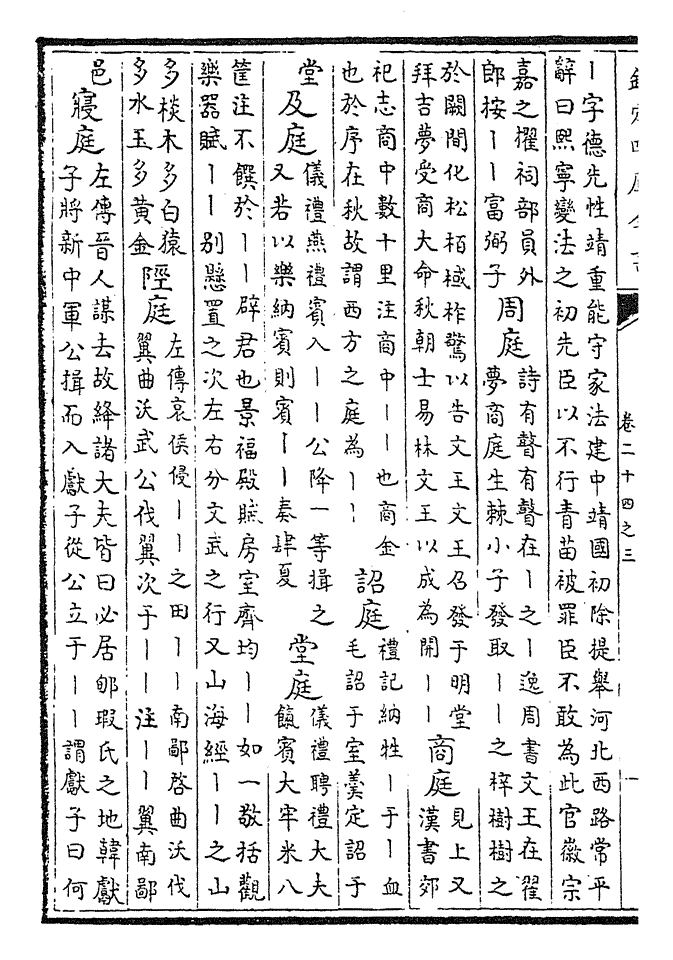 丨字德先性靖重能守家法建中靖國初除提舉河北西路常平
辭曰熙寧變法之初先臣以不行青苗被罪臣不敢為此官徽宗
嘉之擢祠部員外
郎按丨丨富弼子
周庭
詩有瞽有瞽在丨之丨逸周書文王在翟
夢商庭生棘小子發取丨丨之梓樹樹之
於闕間化松栢棫柞驚以告文王文王召發于明堂
拜吉夢受商大命秋朝士易林文王以成為開丨丨
商庭
見上又
漢書郊
祀志商中數十里注商中丨丨也商金
也於序在秋故謂西方之庭為丨丨
詔庭
禮記納牲丨于丨血
毛詔于室羮定詔于
堂
及庭
儀禮燕禮賓入丨丨公降一等揖之
又若以樂納賓則賓丨丨奏肆夏
堂庭
儀禮聘禮大夫
餼賓大牢米八
筐注不饌於丨丨辟君也景福殿賦房室齊均丨丨如一敬括觀
樂器賦丨丨别懸置之次左右分文武之行又山海經丨丨之山
多棪木多白猿
多水玉多黄金
陘庭
左傳哀侯侵丨丨之田丨丨南鄙啓曲沃伐
翼曲沃武公伐翼次于丨丨注丨丨翼南鄙
邑
寢庭
左傳晉人謀去故絳諸大夫皆曰必居郇瑕氏之地韓獻
子將新中軍公揖而入獻子從公立于丨丨謂獻子曰何
卷二十四之三
一